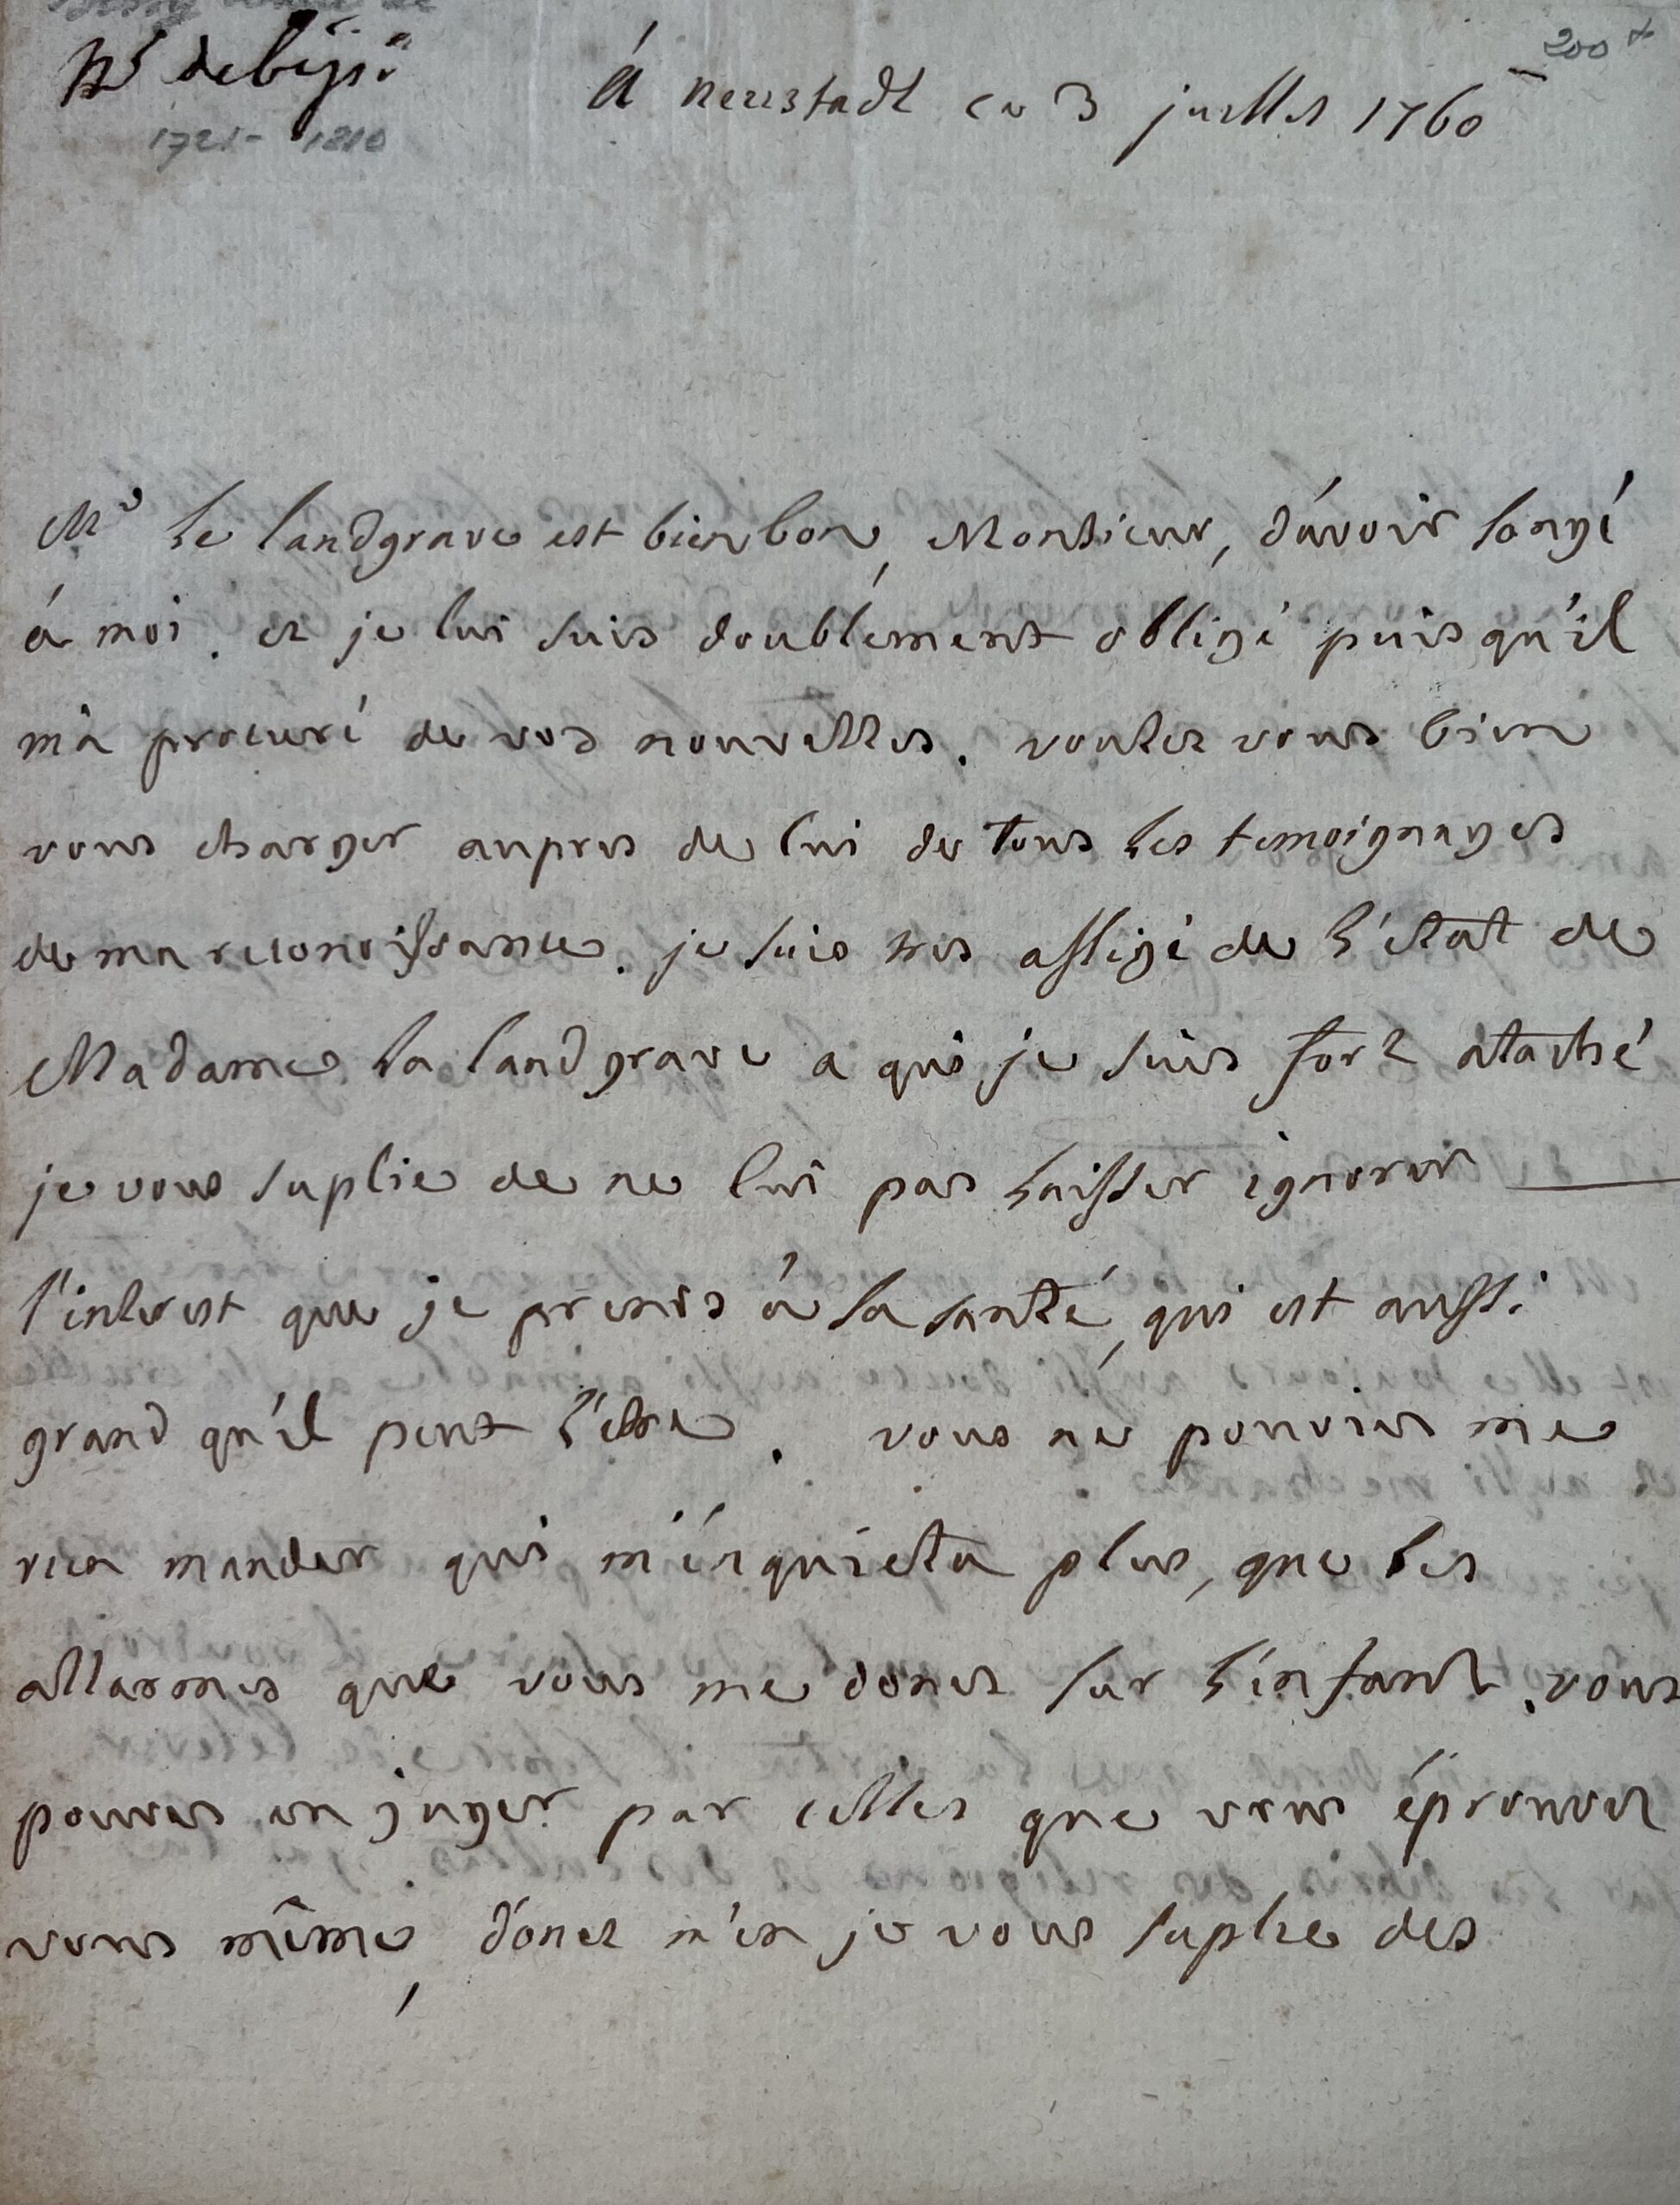 à neustadt ce 3 juillet 1760
200
1721 - 1810
Mr le landgrave est bien bon, Monsieur, d'avoir songé
à moi. et je lui suis doublement obligé puis qu'il
m'a procuré de vos nouvelles. voulez vous bien
vous charger aupres de lui de tous les temoignages
de ma reconoissance. je suis tres afligé de l'état de
Madame la landgrave a qui je suis fort ataché
je vous suplie de ne lui pas laisser ignorer
l'interest que je prends à sa santé, qui est aussi
grand qu'il peut l'etre. vous ne pouviez me
rien mander qui m'inquieta plus, que les
allarmes que vous me donez sur l'infant. vous
pouvez en juger par celles que vous éprouvez
vous même, donez m'en je vous suplie des